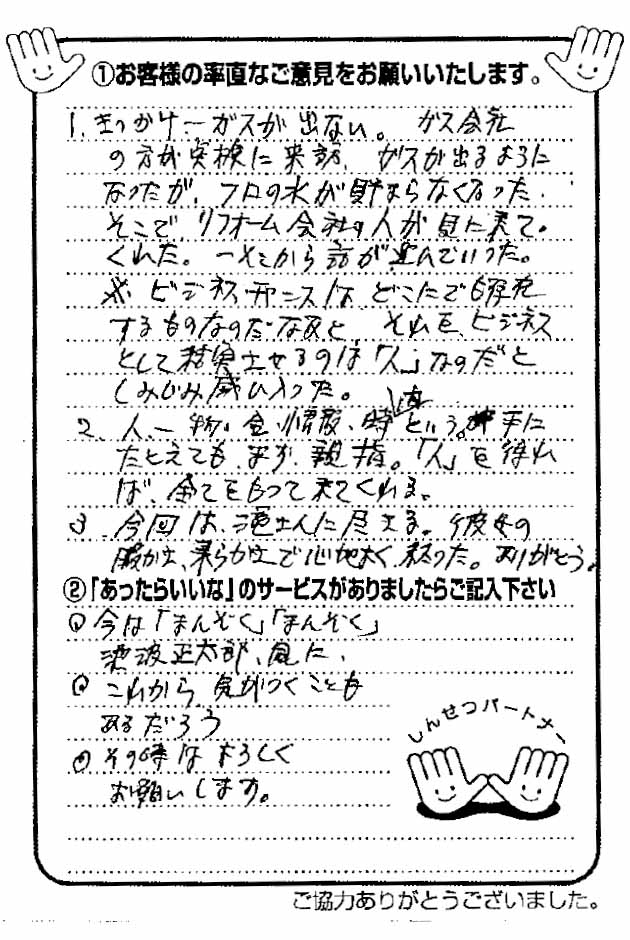 ①お客様の率直なご意見をお願いいたします。
1、きっかけ－ガスが出ない。 ガス会社
の方が実検に来訪、ガスが出るように
なったが、フロの水が貯まらなくなった、
そこで、リフォーム会社の人が見に来て。
くれた。一そこから話が進んでいった。
※ビジネスチャンスは、どこにでも存在
するものなのだなあと、それを、ビジネス
として結実させるのは「人」なのだと
しみじみ感じ入った。
2、人、－物・金、情報、時という。手に
たとえても、まず、親指。「人」を得れ
ば、全てをもって来てくれる。
3、今回は、さんに尽きる。彼女の
で心地よく、終った。ありがとう。
②「あったらいいな」のサービスがありましたらご記入下さい
今は「まんぞく」「まんぞく」
渥波正太郎、風に、
これから 気がつくことも
あるだろう
その時はよろしく
お願いします。
しんせつパートナー
ご協力ありがとうございました。